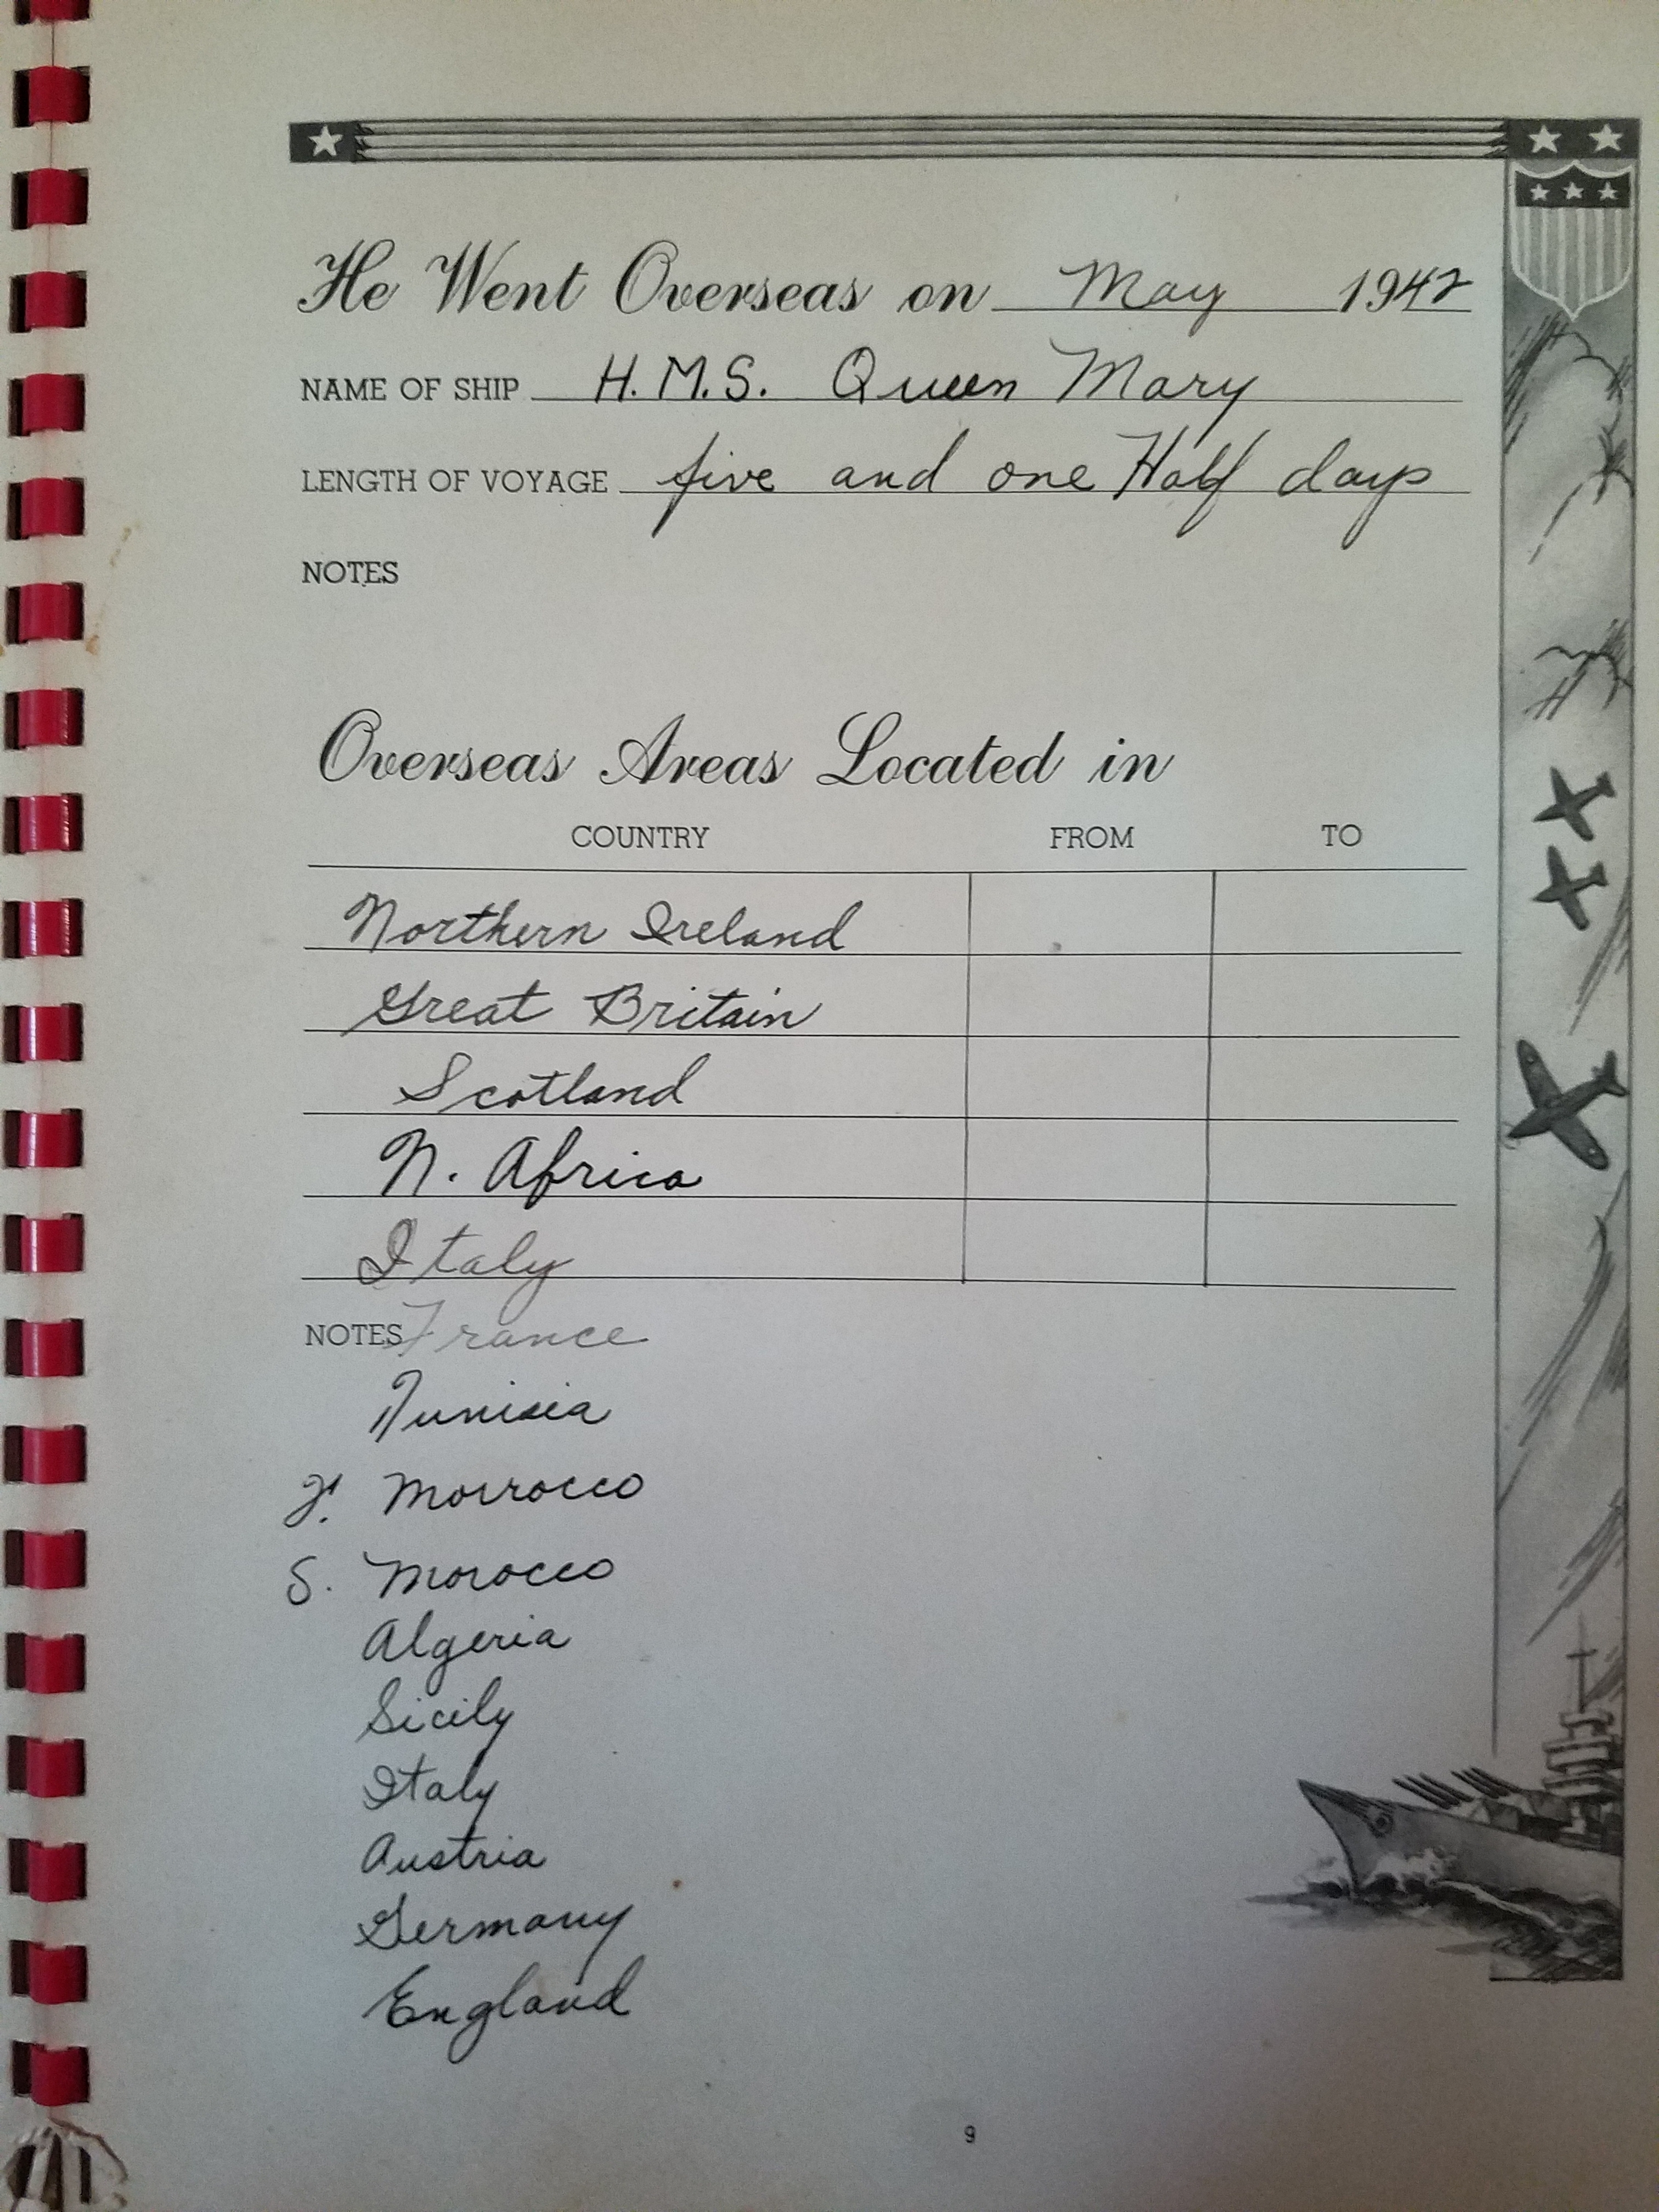 He Went Overseas on May 1942
NAME OF SHIP H.M.S. Queen Mary
LENGTH OF VOYAGE five and one Half days
NOTES
Overseas Areas Located in
COUNTRY FROM TO
Northern Ireland
Great Britain
Scotland
N. Africa
Italy
NOTES France
Tunisia
F. Morrocco
S. Morocco
Algeria
Sicily
Italy
Austria
Germany
England
9